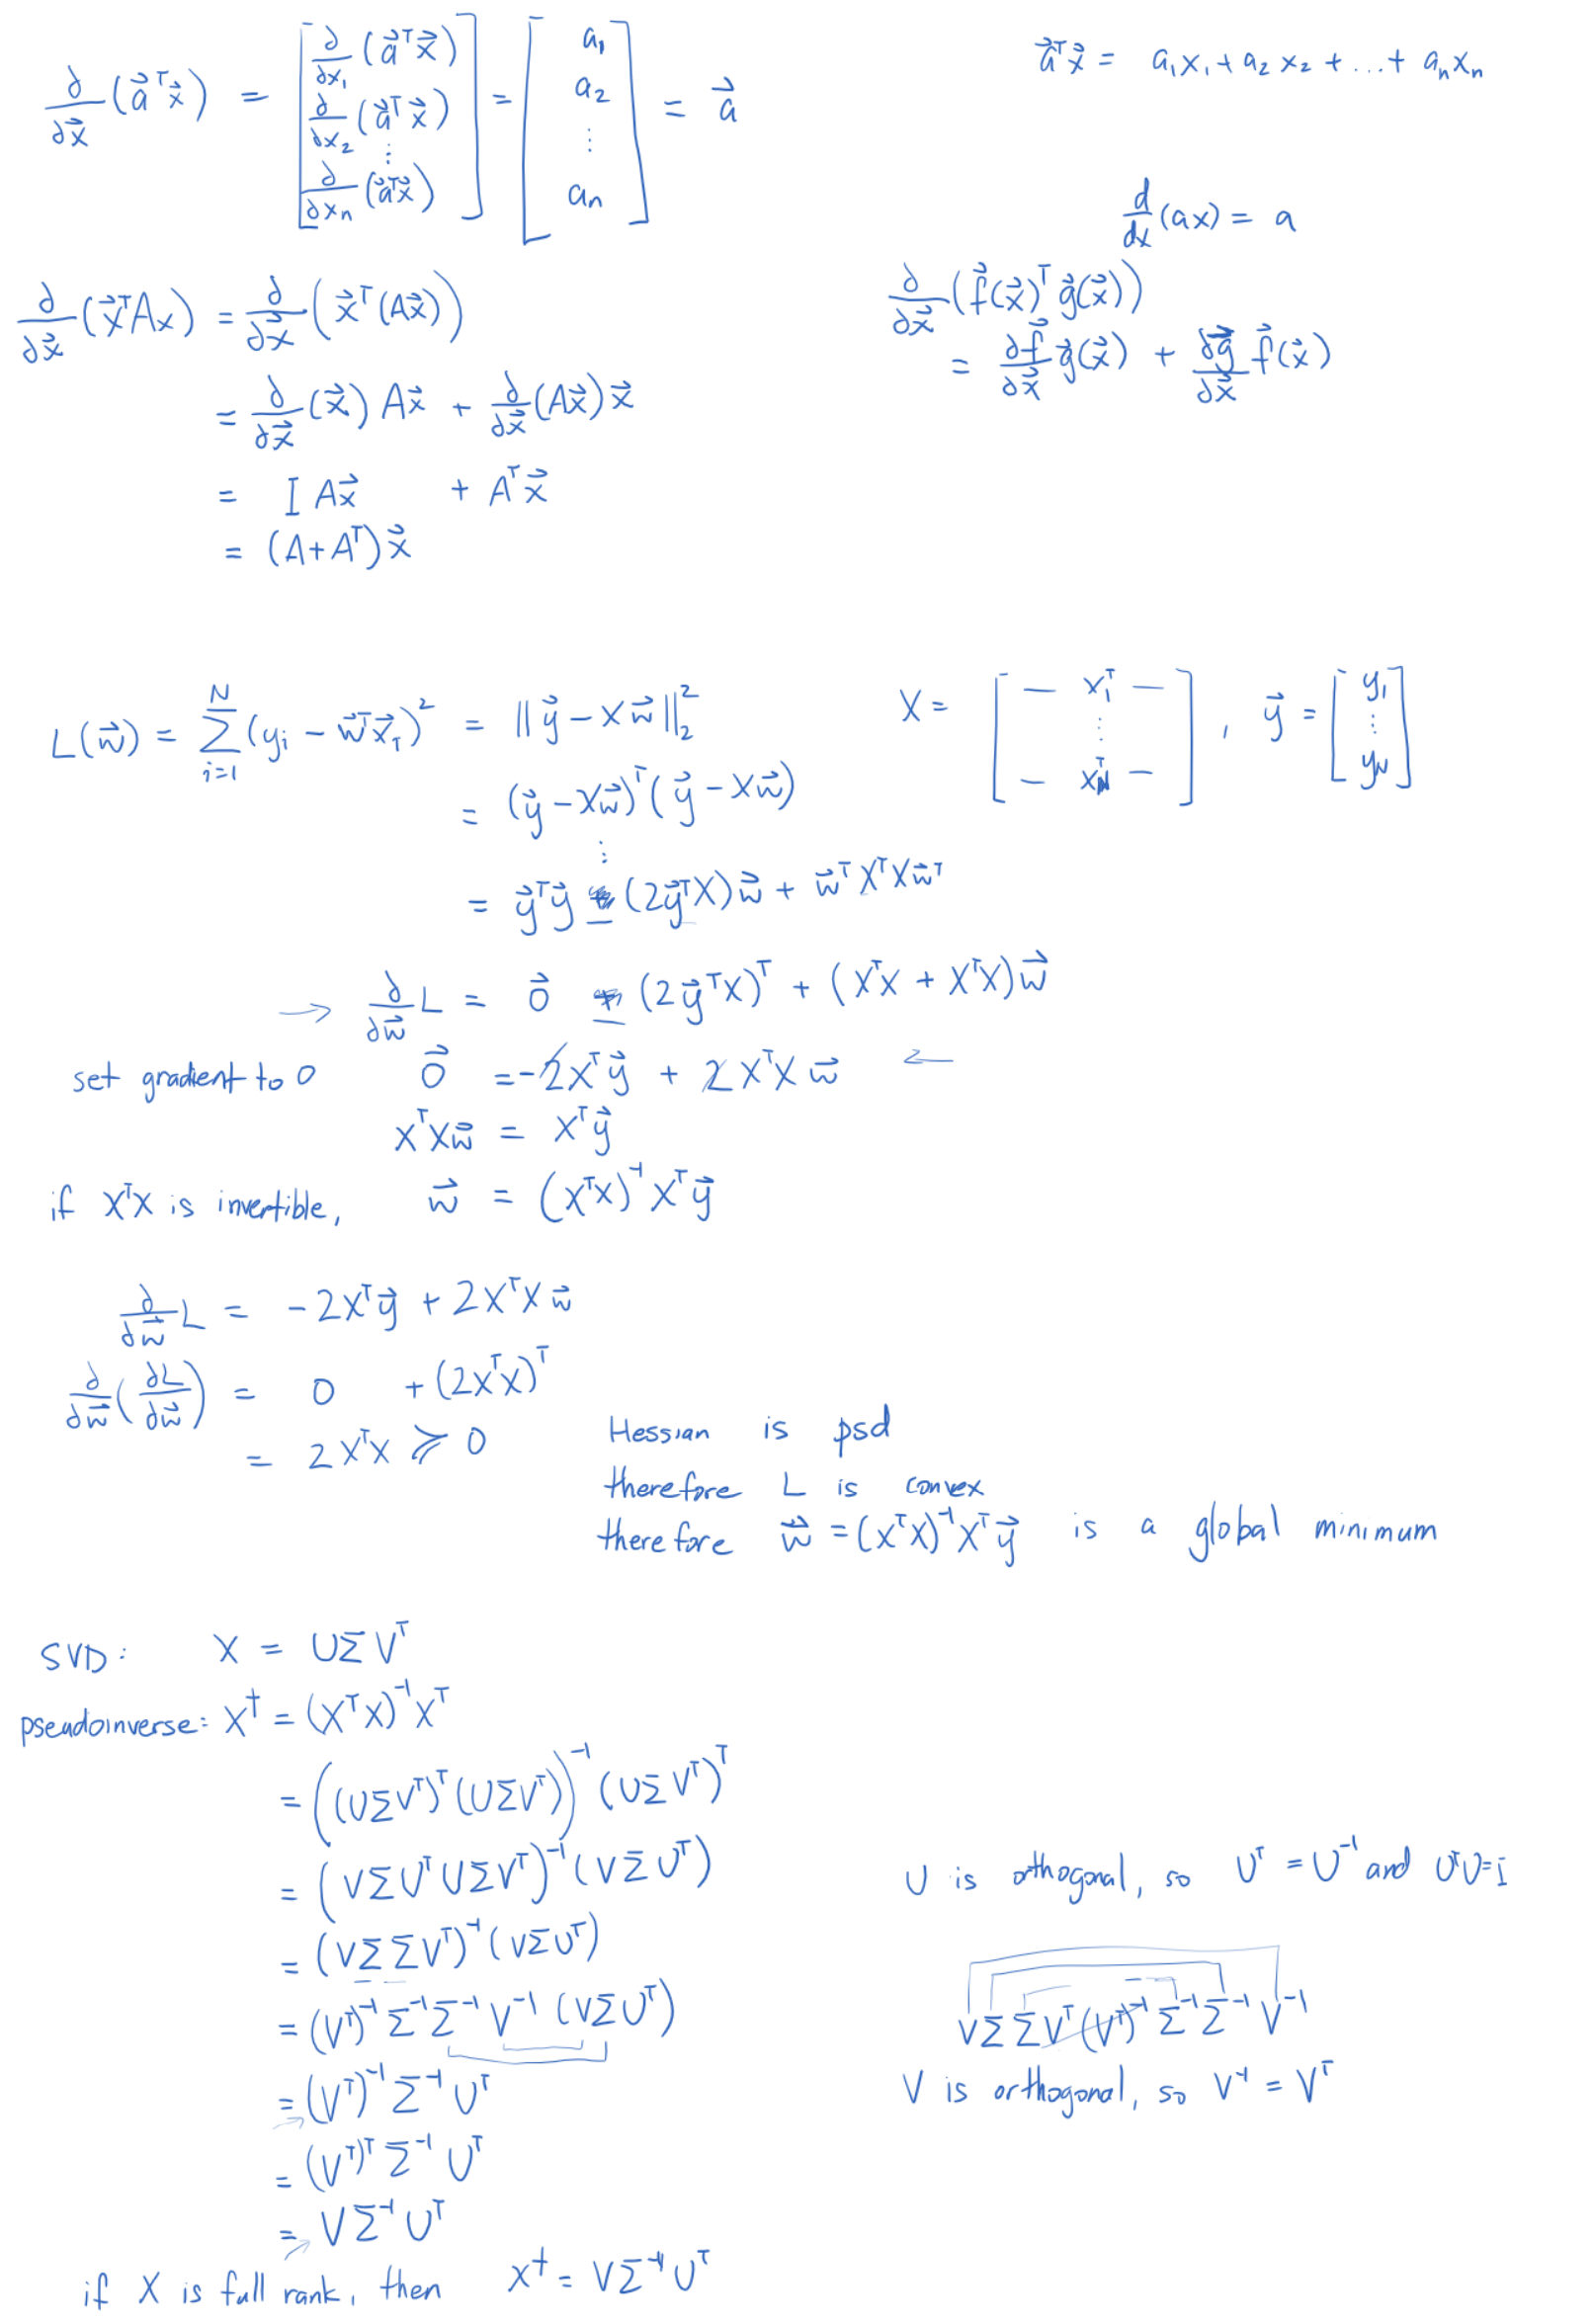 ∂/∂x⃗ (a⃗ᵀx⃗) = [ ∂/∂x₁ (a⃗ᵀx⃗) ∂/∂x₂ (a⃗ᵀx⃗) ⋮ ∂/∂xₙ (a⃗ᵀx⃗) ] = [ a₁ a₂ ⋮ aₙ ] = a⃗
a⃗ᵀx⃗ = a₁x₁ + a₂x₂ + ... + aₙxₙ
d/dx (ax) = a
∂/∂x⃗ (x⃗ᵀAx) = ∂/∂x⃗ (x⃗ᵀ(Ax⃗))
= ∂/∂x⃗ (x⃗) Ax⃗ + ∂/∂x⃗ (Ax⃗) x⃗
= I Ax⃗ + Aᵀx⃗
= (A+Aᵀ)x⃗
∂/∂x⃗ (f⃗(x⃗)ᵀ g⃗(x⃗))
= ∂f⃗/∂x⃗ g⃗(x⃗) + ∂g⃗/∂x⃗ f⃗(x⃗)
L(w⃗) = Σ_{i=1}^{N} (yᵢ − w⃗ᵀx⃗ᵢ)² = ‖y⃗ − Xw⃗‖₂²
X = [ — x₁ᵀ — ⋮ — x_Nᵀ — ] , y⃗ = [ y₁ ⋮ y_N ]
= (y⃗ − Xw⃗)ᵀ(y⃗ − Xw⃗)
⋮
= y⃗ᵀy⃗ − (2y⃗ᵀX)w⃗ + w⃗ᵀXᵀXw⃗ᵀ
→ ∂/∂w⃗ L = 0⃗ − (2y⃗ᵀX)ᵀ + (XᵀX + XᵀX)w⃗
set gradient to 0 0⃗ = −2Xᵀy⃗ + 2XᵀXw⃗ ←
XᵀXw⃗ = Xᵀy⃗
if XᵀX is invertible, w⃗ = (XᵀX)⁻¹Xᵀy⃗
∂/∂w⃗ L = −2Xᵀy⃗ + 2XᵀXw⃗
∂/∂w⃗ (∂L/∂w⃗) = 0 + (2XᵀX)ᵀ
= 2XᵀX ≽ 0
Hessian is psd
therefore L is convex
therefore w⃗ = (XᵀX)⁻¹Xᵀy⃗ is a global minimum
SVD: X = UΣVᵀ
pseudoinverse: X† = (XᵀX)⁻¹Xᵀ
= ((UΣVᵀ)ᵀ(UΣVᵀ))⁻¹(UΣVᵀ)ᵀ
= (VΣUᵀUΣVᵀ)⁻¹(VΣUᵀ)
U is orthogonal, so Uᵀ = U⁻¹ and UᵀU=I
= (VΣΣVᵀ)⁻¹(VΣUᵀ)
= (Vᵀ)⁻¹Σ⁻¹Σ⁻¹V⁻¹(VΣUᵀ)
VΣΣVᵀ(Vᵀ)⁻¹Σ⁻¹Σ⁻¹V⁻¹
= (Vᵀ)⁻¹Σ⁻¹Uᵀ
V is orthogonal, so V⁻¹ = Vᵀ
= (Vᵀ)ᵀΣ⁻¹Uᵀ
= VΣ⁻¹Uᵀ
if X is full rank, then X† = VΣ⁻¹Uᵀ